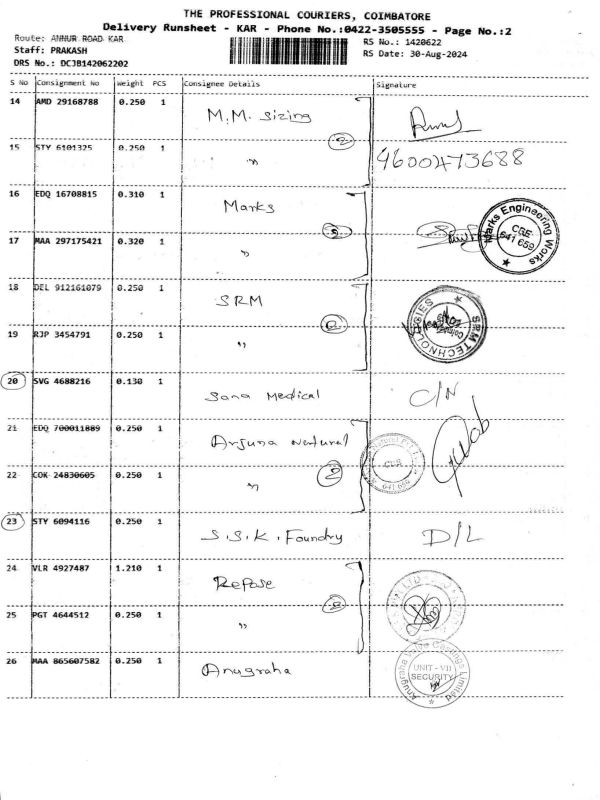 THE PROFESSIONAL COURIERS, COIMBATORE
Delivery Runsheet - KAR - Phone No.:0422-3505555 - Page No.:2
Route: ANNUR ROAD KAR
RS No.: 1420622
Staff: PRAKASH
RS Date: 30-Aug-2024
DRS No.: DCJB142062202
S No Consignment No Weight PCS Consignee Details Signature
14 AMD 29168788 0.250 1 M.M. Sizing
2
15 STY 6101325 0.250 1 " 9600473688
16 EDQ 16708815 0.310 1 Marks
2
Marks Engineering Works
CBE
641 659
17 MAA 297175421 0.320 1 "
18 DEL 912161079 0.250 1 SRM
2
SRM TECHNOLOGIES
19 RJP 3454791 0.250 1 "
20 SVG 4688216 0.130 1 Sana Medical C/N
21 EDQ 700011889 0.250 1 Arjuna Natural
2
CBE
641 659
22 COK 24830605 0.250 1 "
23 STY 6094116 0.250 1 S.S.K. Foundry D/L
24 VLR 4927487 1.210 1 Repose
2
25 PGT 4644512 0.250 1 "
26 MAA 865607582 0.250 1 Anugraha
Anugraha Valve Castings Limited
UNIT - VII
SECURITY